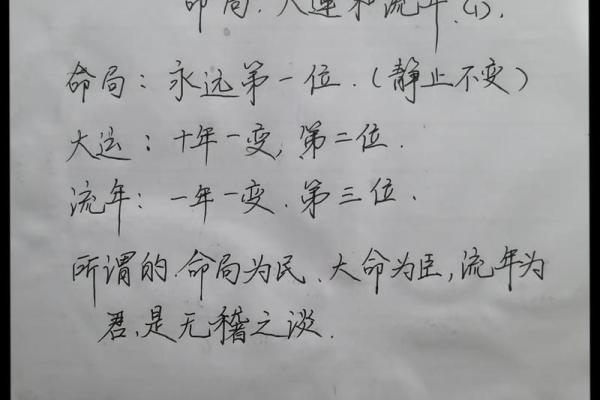 命局.大运和流年.(1).
命局：永远第一位.(静止不变)
大运：十年一变,第二位.
流年：一年一变.第三位.
所谓的.命局为民、大命为臣,流年为
君,是无稽之谈.